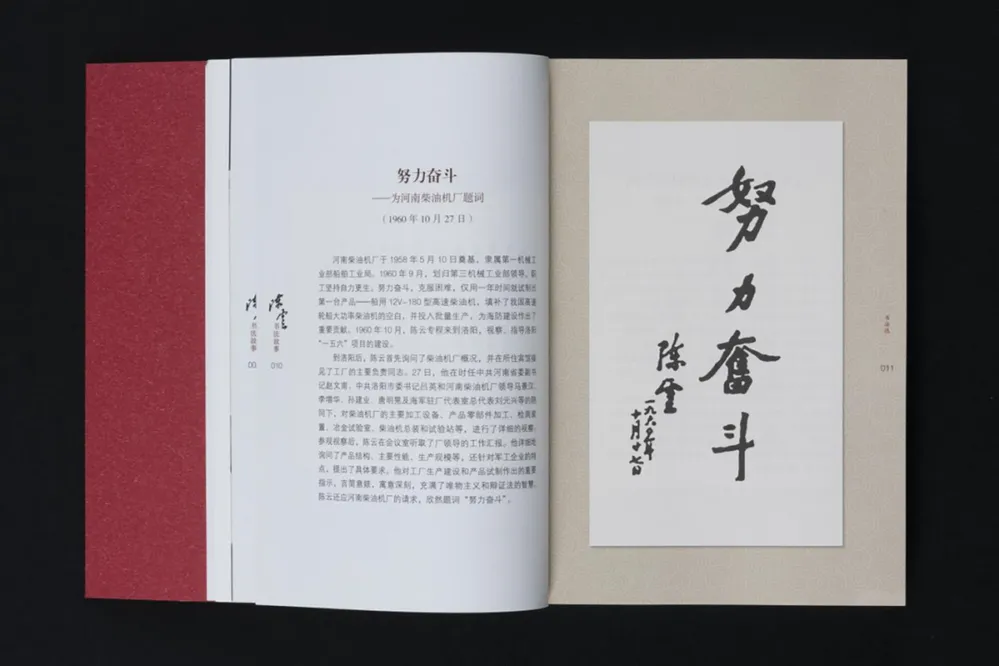 努力奋斗
——为河南柴油机厂题词
（1960 年 10 月 27 日）
河南柴油机厂于 1958 年 5 月 10 日奠基，隶属第一机械工
业部船舶工业局。1960 年 9 月，划归第三机械工业部领导。职
工坚持自力更生、努力奋斗，克服困难，仅用一年时间就试制出
第一台产品——船用 12V-180 型高速柴油机，填补了我国高速
轮船大功率柴油机的空白，并投入批量生产，为海防建设作出了
重要贡献。1960 年 10 月，陈云专程来到洛阳，视察、指导洛阳
“一五六”项目的建设。
到洛阳后，陈云首先询问了柴油机厂概况，并在所住宾馆接
见了工厂的主要负责同志。27 日，他在时任中共河南省委副书
记赵文甫、中共洛阳市委书记吕英和河南柴油机厂领导马
李增华、孙建业、唐明晃及海军驻厂代表室总代表刘光兴等的陪
同下，对柴油机厂的主要加工设备、产品零部件加工、检具装
置、冶金试验室、柴油机总装和试验站等，进行了详细的视察。
参观视察后，陈云在会议室听取了厂领导的工作汇报。他详细地
询问了产品结构、主要性能、生产规模等，还针对军工企业的特
点，提出了具体要求。他对工厂生产建设和产品试制作出的重要
指示，言简意赅，寓意深刻，充满了唯物主义和辩证法的智慧。
陈云还应河南柴油机厂的请求，欣然题词“努力奋斗”。
陈云
书法故事
010
努力奋斗
陈云
一九六〇年
十月廿七日
011